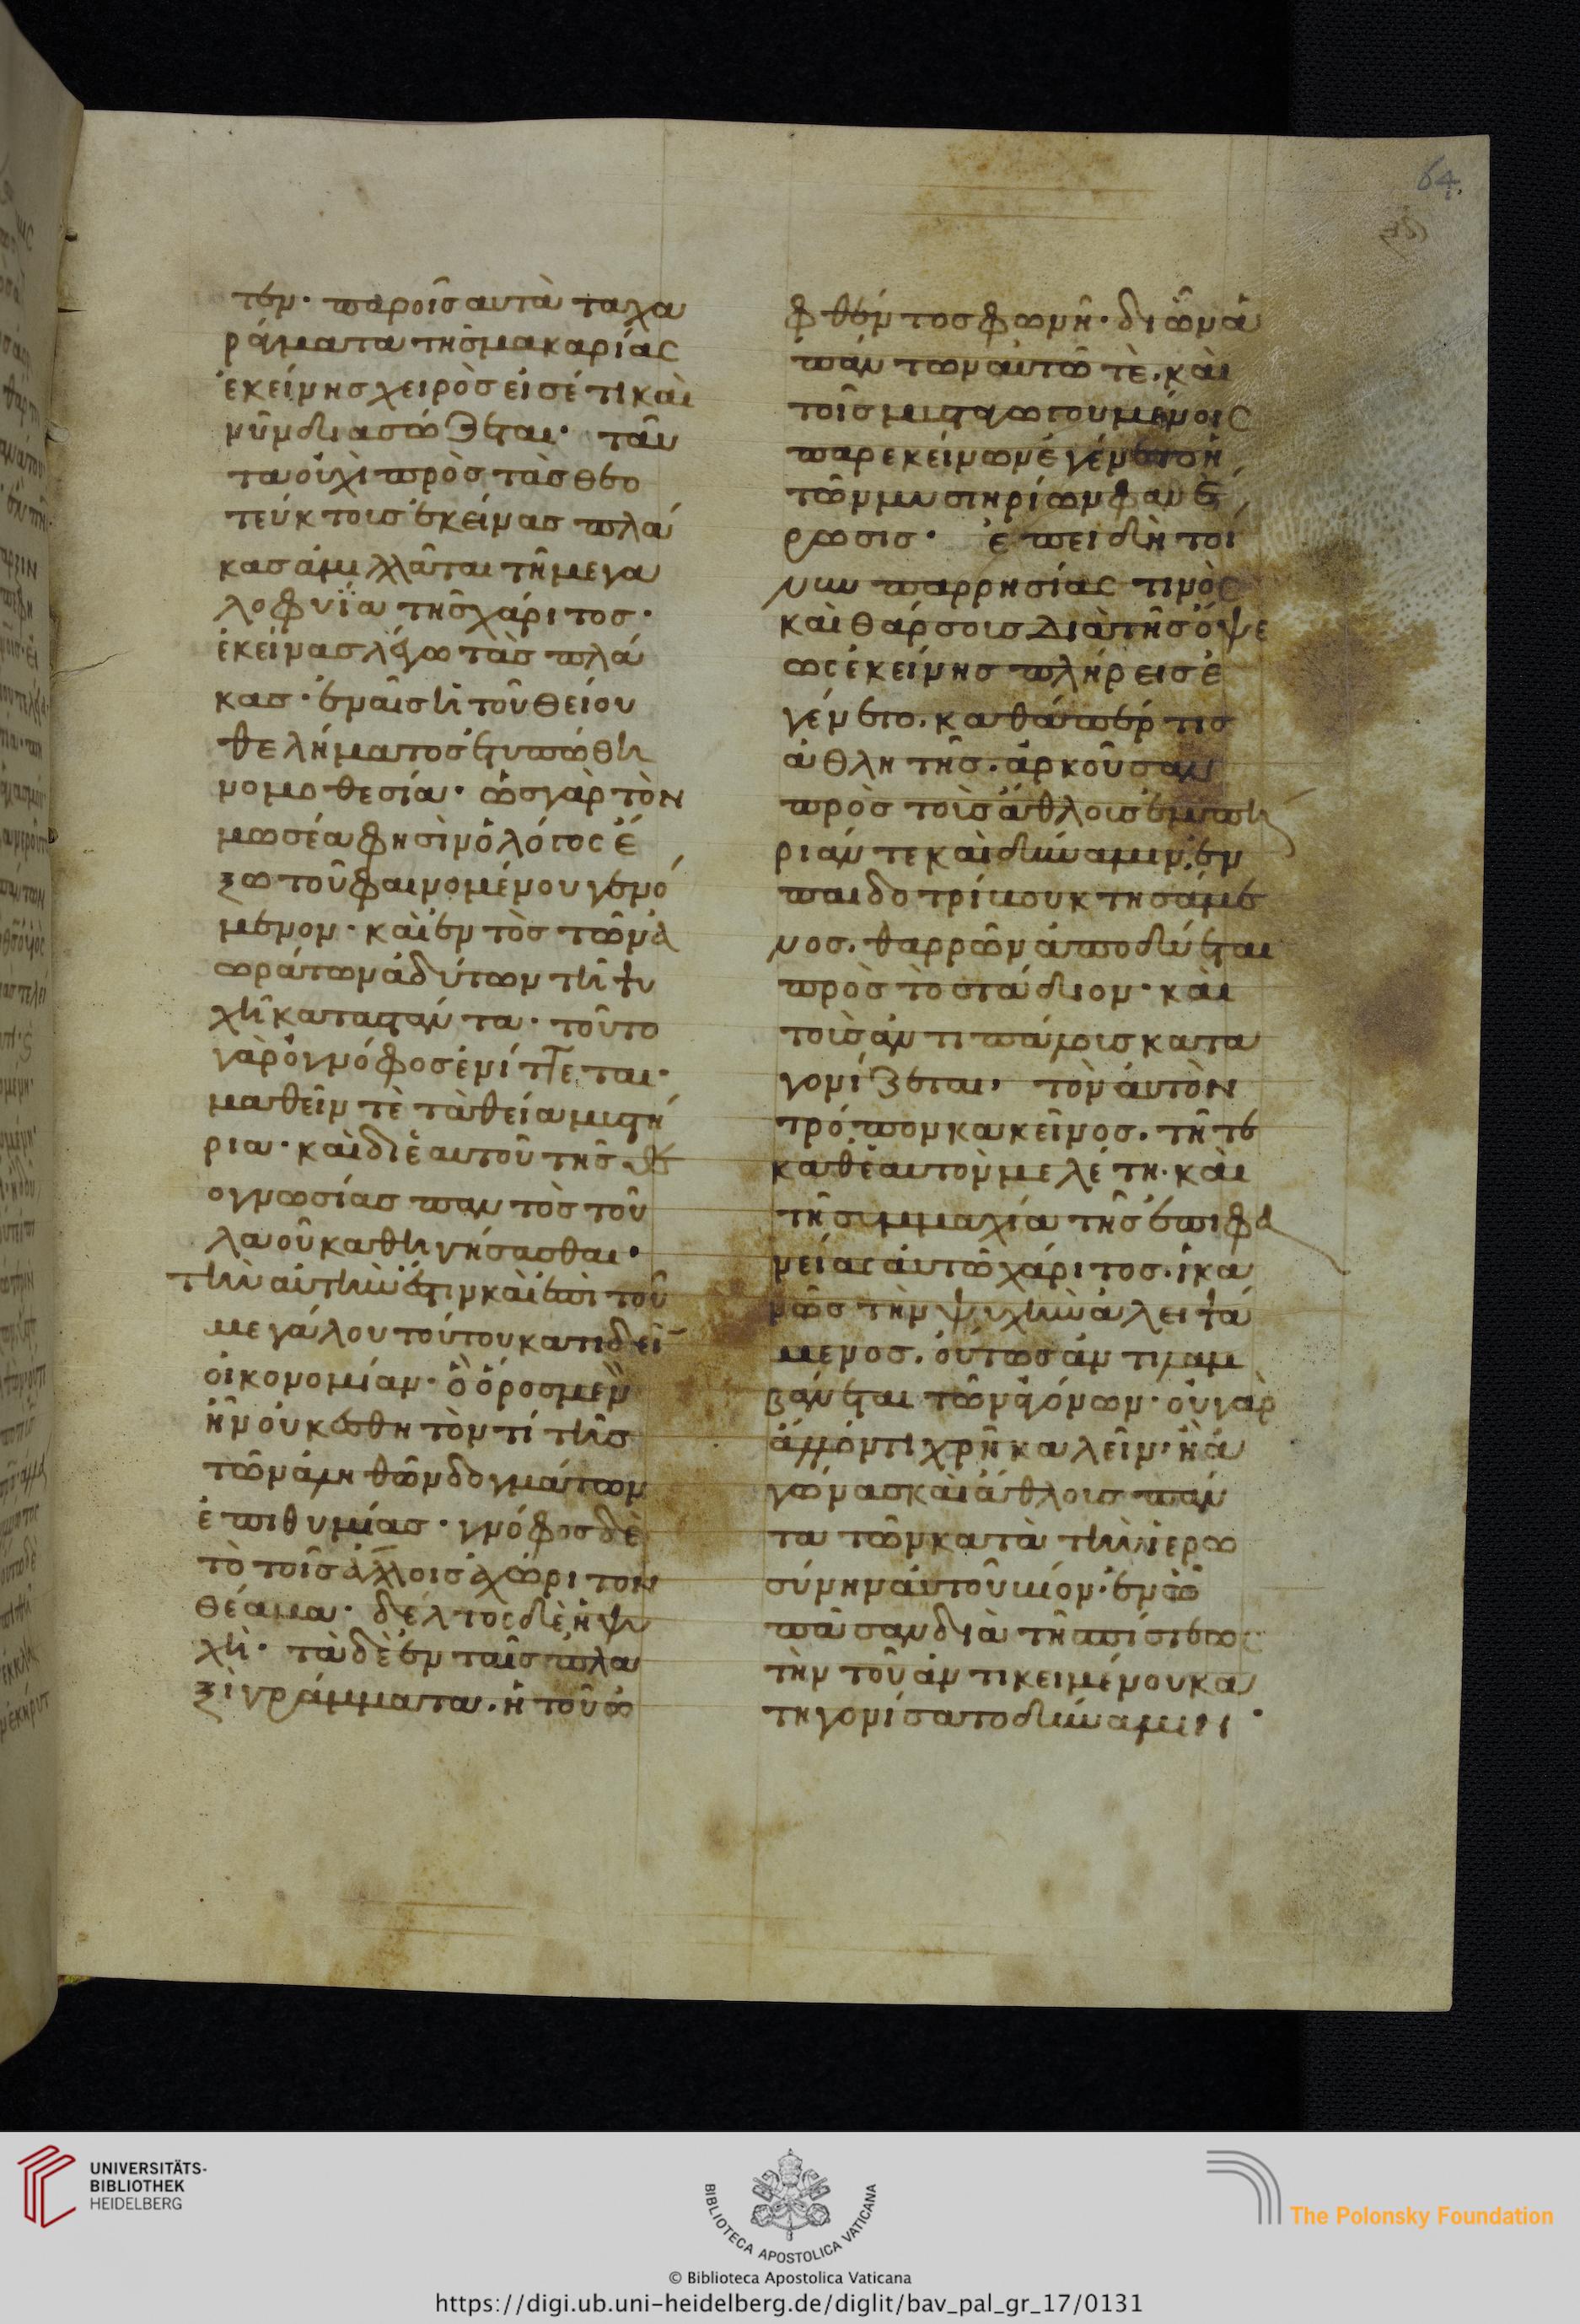 64.
τεν· παροῖς αυτὰ τα χα
ράγματα τῆς μακαρίας
ἐκείνης χειρὸς εἰσέτι καὶ
νῦν διασώζεται· ταῦ
τα οὐχὶ πρὸς τὰς θεο
τεύκτοις ἐκείνας πλά
κας ἁμιλλᾶται τῆ μεγα
λοφυΐα τῆς χάριτος·
ἐκείνας λέγω τὰς πλά
κας· ἐν αἷς ἡ τοῦ θείου
θελήματος ἐτυπώθη
νομοθεσία· ὡς γὰρ τὸν
μωσέα φησὶν ὁ λόγος ἔ
ξω τοῦ φαινομένου γενό
μενον· καὶ ἐντὸς τῶν ἀ
ωράτων ἀδύτων τῆ ψυ
χῆ καταστάντα· τοῦτο
γὰρ ὁ γνόφος ἐνίττεται·
μαθεῖν τὲ τὰ θεία μυστή
ρια· καὶ δι ἑαυτοῦ τῆς θε
ογνωσίας παντὸς τοῦ
λαοῦ καθηγήσασθαι·
τὴν αὐτὴν ἔστιν καὶ ἐπὶ τοῦ
μεγάλου τούτου κατιδεῖν
οἰκονομίαν· ὃ ὄρος μὲν
ἦν οὐκ αἰσθητὸν τί τῆς
τῶν ἀληθῶν δογμάτων
ἐπιθυμίας· γνόφος δὲ
τὸ τοῖς ἄλλοις ἀχώριτον
θέαμα· δέλτος δὲ, ἡ ψυ
χὴ· τὰ δὲ ἐν ταῖς πλα
ξὶ γράμματα· ἡ τοῦ ὀ
φθέντος φωνὴ· δι ὧν ἁ
πάντων αὐτῶ τὲ, καὶ
τοῖς μυσταγωγουμένοις
παρ εκείνων ἐγένετο ἡ
τῶν μυστηρίων φανέ
ρωσις· ἐπειδὴ τοί
νυν παρρησίας τινὸς
καὶ θάρσους διὰ τῆς ὄψε
ως ἐκείνης πλήρεις ἐ
γένετο· καθάπερ τις
ἀθλητῆς· ἀρκοῦσαν
πρὸς τοὶς ἄθλοις ἐμπει
ρίαν τε καὶ δύναμιν, ἐν
παιδοτρίβου κτησάμε
νος· θαρρῶν ἀποδύεται
πρὸς τὸ στάδιον· καὶ
τοὶς ἀντιπάλοις κατα
γονίζεται· τὸν αὐτὸν
τρόπον κακεῖνος· τῆ τε
καθ ἑαυτοὺν μελέτη· καὶ
τῆ συμμαχία τῆς ἐπιφα
νείας αὐτῶ χάριτος· ἱκα
νῶς τὴν ψυχὴν ἀλειψά
μενος· οὕτως ἀντιλαμ
βάνεται τῶν ἀγόνων· οὐ γὰρ
ἄλλόντι χρὴ καλεῖν· ἢ ἀ
γώνας καὶ ἄθλους πάν
τα τῶν κατὰ τὴν ἱερω
σύνην αὐτοῦ βίον· ἐν ὧ
πᾶσαν διὰ τῆς πίστεως
τὴν τοῦ ἀντικειμένου κα
τηγονίσατο δύναμιν·
UNIVERSITÄTS-
BIBLIOTHEK
HEIDELBERG
BIBLIOTECA APOSTOLICA VATICANA
The Polonsky Foundation
© Biblioteca Apostolica Vaticana
https://digi.ub.uni-heidelberg.de/diglit/bav_pal_gr_17/0131